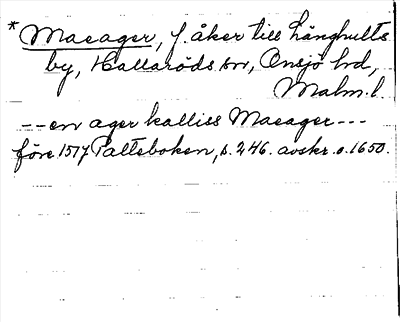 *Maeager, f. åker till Långhults
by, Hallaröds sn, Onsjö hd,
Malm. l.
-- en ager kalliss Maeager ---
före 1517 Palteboken, s. 246. avskr. o. 1650.